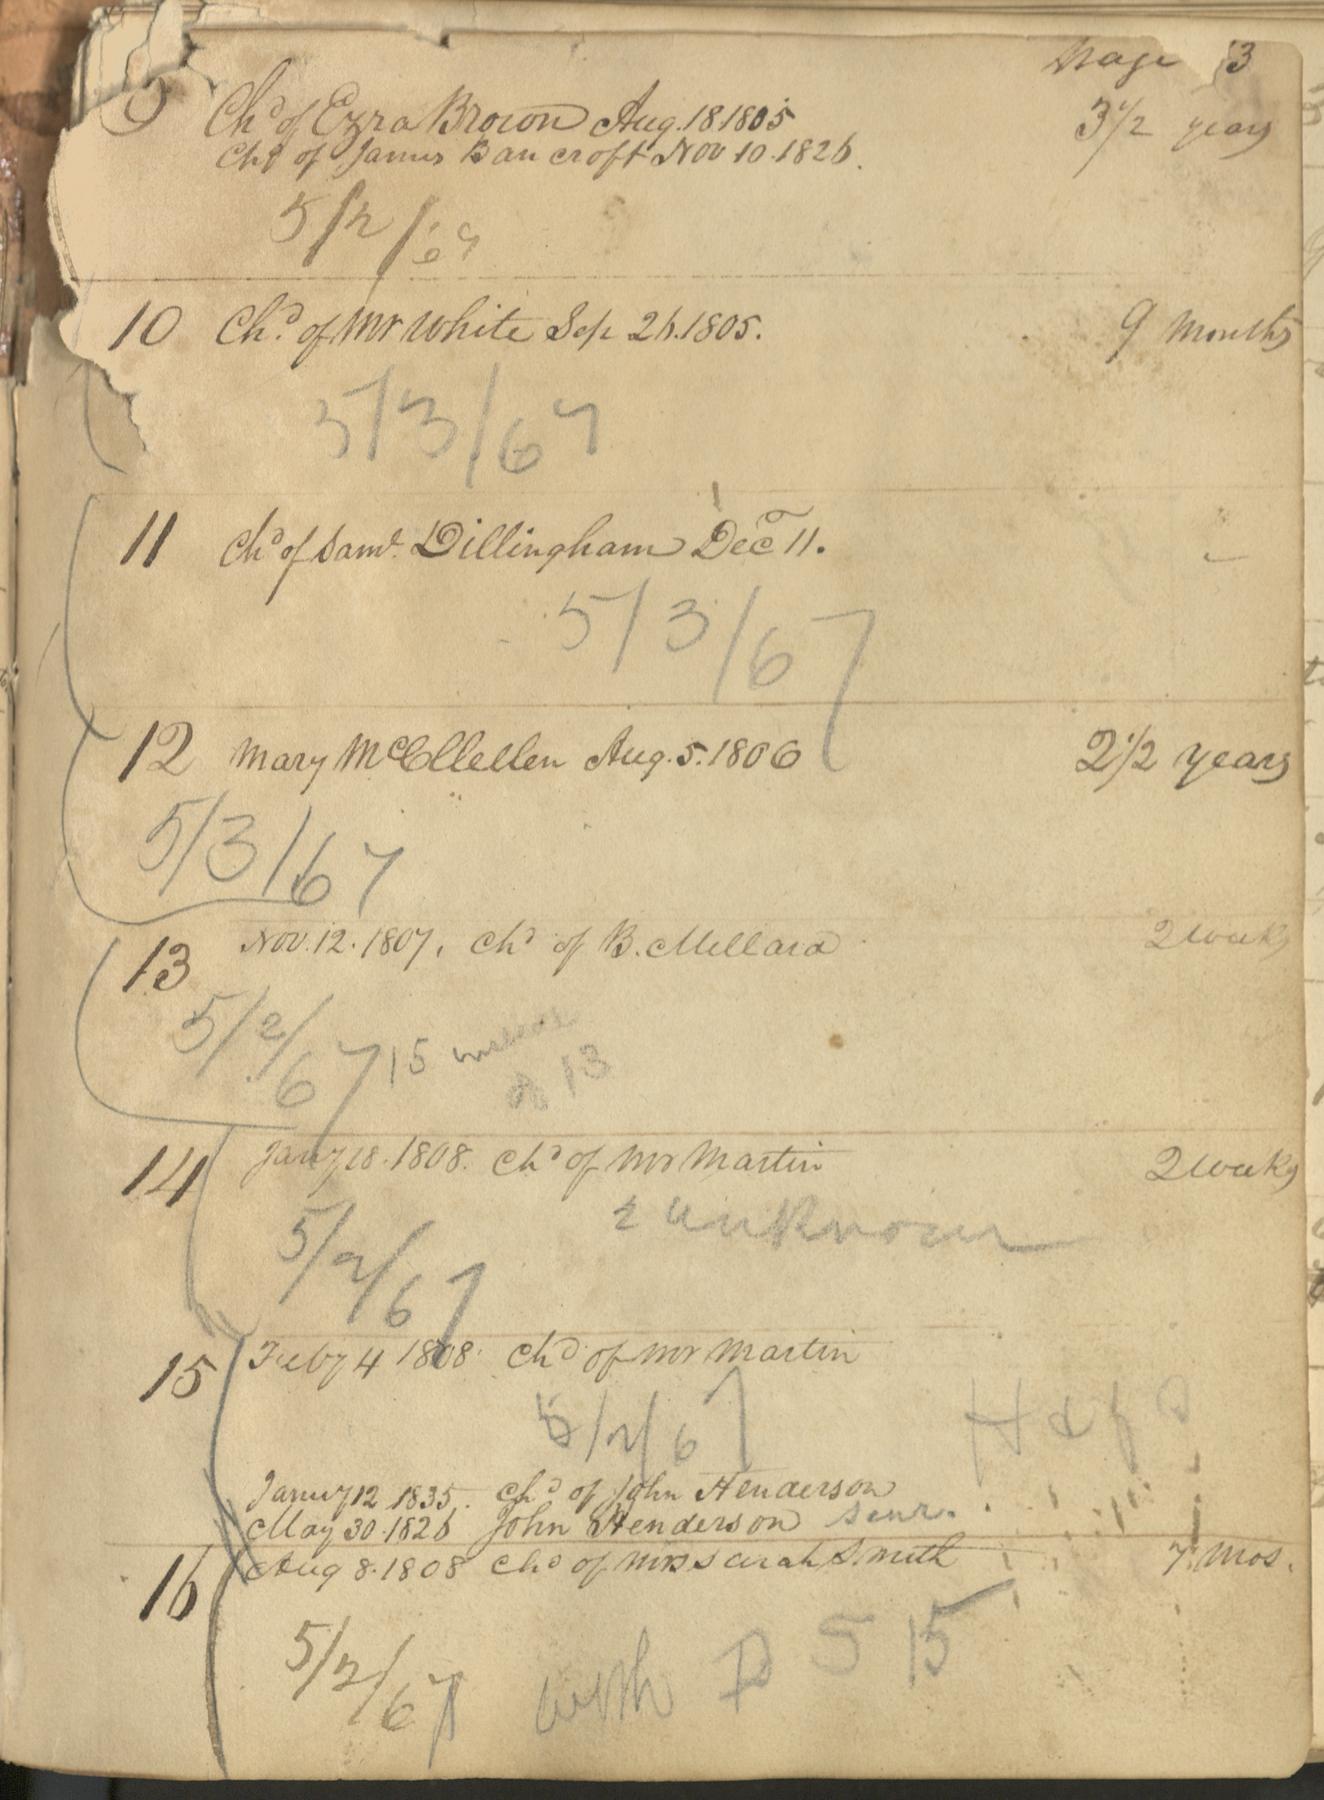 Page 3
9 Chd of Ezra Brown Aug. 18 1805 3 1/2 years
Chd of James Bancroft Nov 10. 1826.
5/2/67
10 Chd. of Mr White Sep 26. 1805. 9 Months
5/3/67
11 Chd of Saml. Dillingham Dec 11. -
5/3/67
12 Mary McCllellen Aug. 5. 1806 2 1/2 years
5/3/67
13 Nov. 12. 1807. Chd of B. Millard 2 weeks
5/2/67 15
13
14 Jany 18. 1808. Chd of Mr Martin 2 weeks
2 unknown
5/2/67
15 Feby 4 1808. Chd of Mr Martin
5/2/67
Janny 12 1835. Chd of John Henderson
May 30. 1826 John Henderson senr.
16 Aug 8. 1808 Chd of Mrs Sarah Smith 7 mos.
5/2/67 with 15